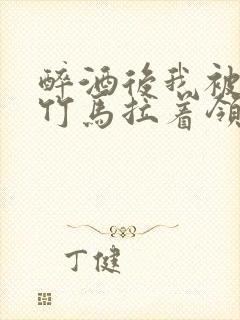 醉酒後我被
竹馬拉着領
丁健